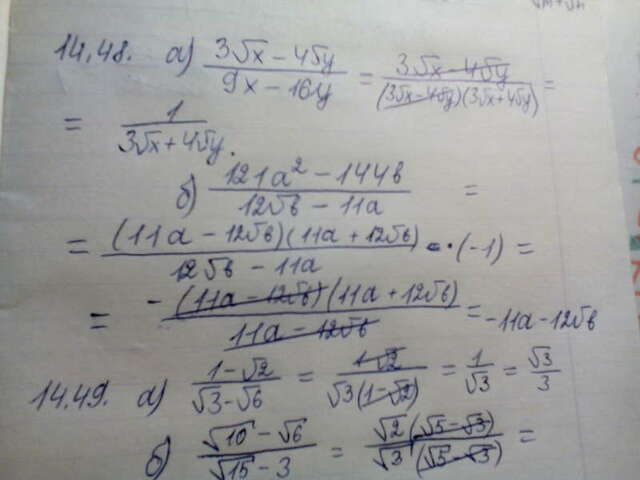 √m+√n
14.48. а) (3√x - 4√y)/(9x - 16y) = (3√x - 4√y)/((3√x - 4√y)(3√x + 4√y)) =
= 1/(3√x + 4√y).
б) (121a² - 144в)/(12√в - 11a) =
= ((11a - 12√в)(11a + 12√в))/(12√в - 11a) · (-1) =
= -((11a - 12√в)(11a + 12√в))/(11a - 12√в) = -11a - 12√в
14.49. а) (1 - √2)/(√3 - √6) = (1 - √2)/(√3(1 - √2)) = 1/√3 = √3/3
б) (√10 - √6)/(√15 - 3) = (√2(√5 - √3))/(√3(√5 - √3)) =